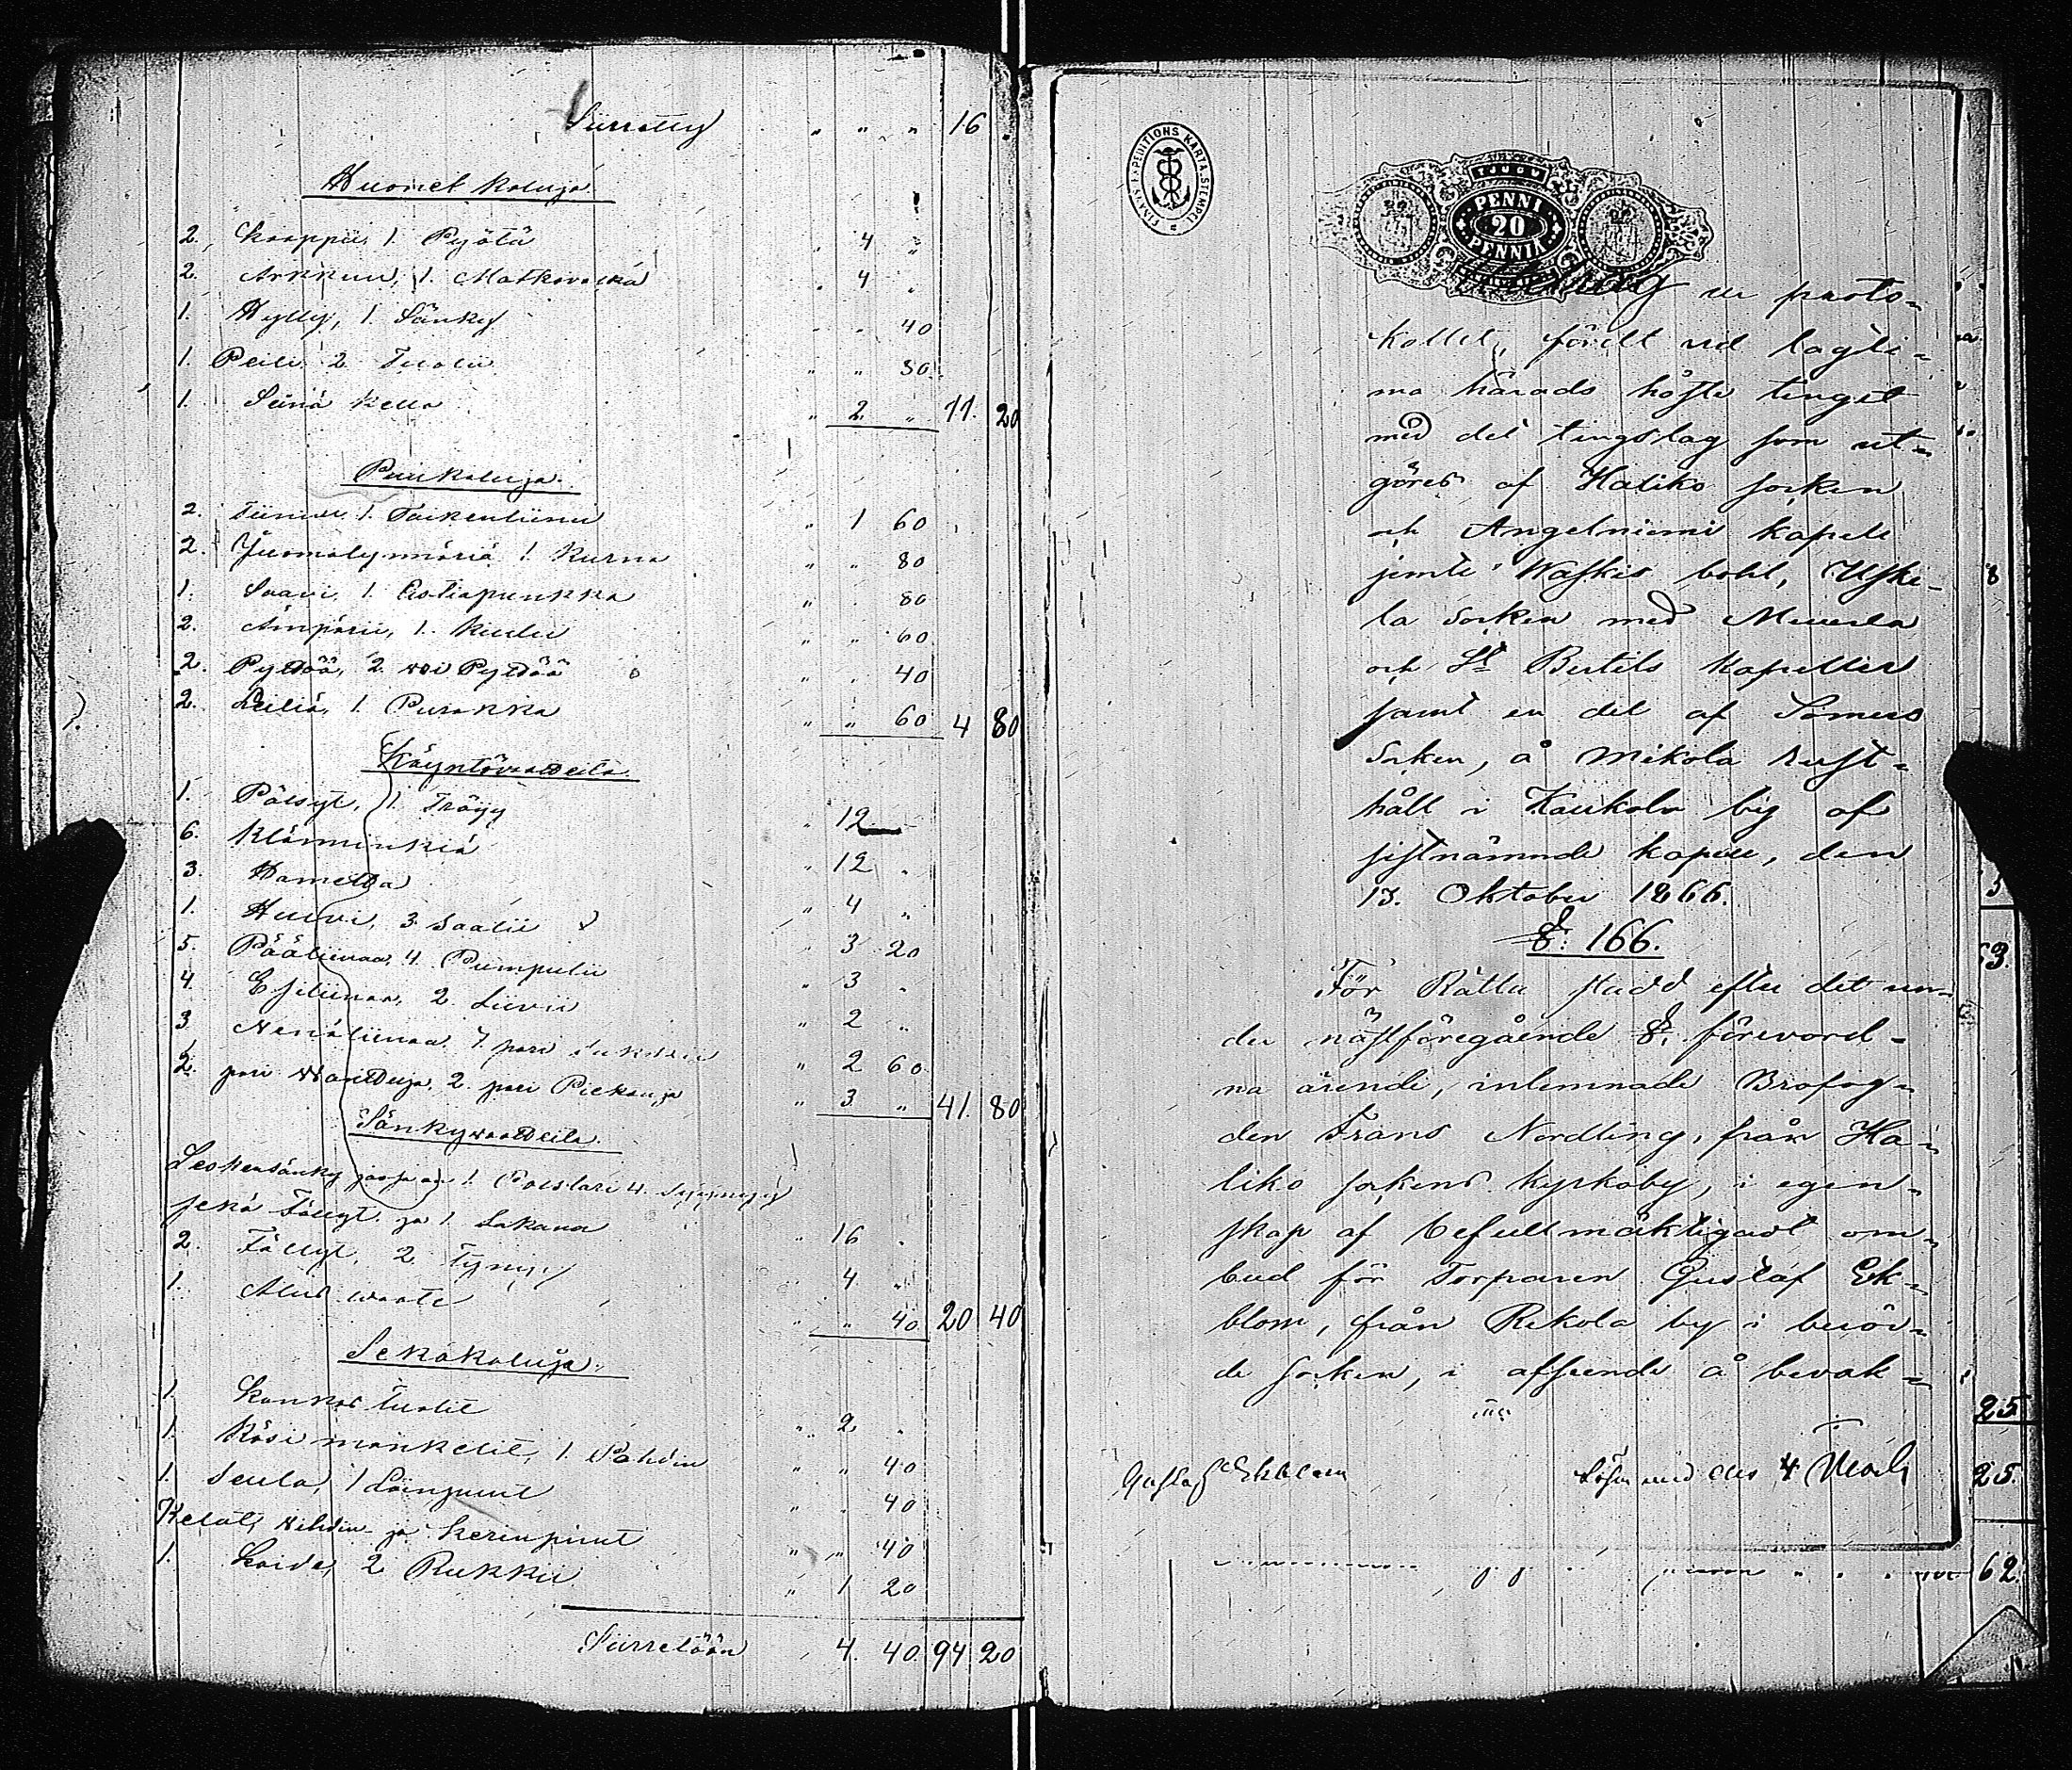 Siirretty " " " 16 "
Huonet kaluja.
2. Kaappii, 1. Pyötä " 4 "
2. Arkkuu, 1. Matkavakka " 4 "
1. Hylly, 1. Sänky " " 40
1. Peili 2 Tuolii " " 80
1. Seinä kello " 2 " 11. 20
Puukaluja.
2. Tiinua 1. Taikentiinu " 1 60
2. Juomatynnöriä 1 Kurna " " 80
1. Saavi, 1. Astiapunkka " " 80
2. Ämpärii, 1. Kiulu " " 60
2. Pyttöä, 2. voi Pyttöä " " 40
2. Leiliä, 1. Purakka " " 60 4 80
Käyntövaatteita
1. Pälsyt, 1. Tröijy " 12 "
6. Klänninkiä " 12 "
3. Hametta " 4 "
1. Huivi, 3 Saalii " 3 20
5. Pääliinaa, 4. Pumpulii " 3 "
4. Esiliinaa, 2. Liivii " 2 "
3. Nenäliinaa 7. pari Sukkia " 2 60
2. pari Vanttuja, 2. pari Pieksuja " 3 " 41. 80
Sänkyvaatteita.
Leskensänky jossa on 1. Polstari 4. Tyynyjä
sekä Fällyt. ja 1. Lakana " 16 "
2. Fällyt, 2. Tyny " 4 "
1. Alus vaate " " 40 20 40
Sekakaluja.
1. Kankas tuolit " 2 "
1. Käsi mankelit, 1. Pahdin " " 40
1. Seula, 1 " " 40
Kelat, Vihdin- ja kerinpuut " " 40
1. Kaide, 2 Rukkii " 1 20
Siirretään " 4. 40 94 20
FINSKA EXPEDITIONS KARTA STEMPEL
TJUGU
PENNI
20
PENNIÄ
Utdrag ur proto-
kollet, fördt vid lagti-
ma härads höste tinget
med det tingslag som ut-
göres af Haliko socken
och Angelniemi kapell
jemte Waskis bohl, Uske-
la Socken med Muurla
och S:t Bertils kapeller
samt en del af Somero
Socken, å Mikola rust-
håll i Kaukola by af
sistnämnde kapell, den
13. Oktober 1866.
§. 166.
För Rätta stadd efter det un-
der nästföregående §. förevord-
na ärende, inlemnade Brofog-
den Frans Nordling, från Ha-
liko sockens kyrkoby, i egen-
skap af befullmäktigadt om-
bud för Torparen Gustaf Ek-
blom, från Rekola by i berör-
de socken, i afseende å bevak-
Gustaf Ekblom Löses med 4 Mark
8
3.
25
25.
62.